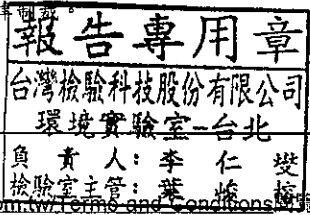 報告專用章
台灣檢驗科技股份有限公司
環境實驗室-台北
負責人：李仁燮
檢驗室主管：葉
om.tw/Terms-and-Conditions